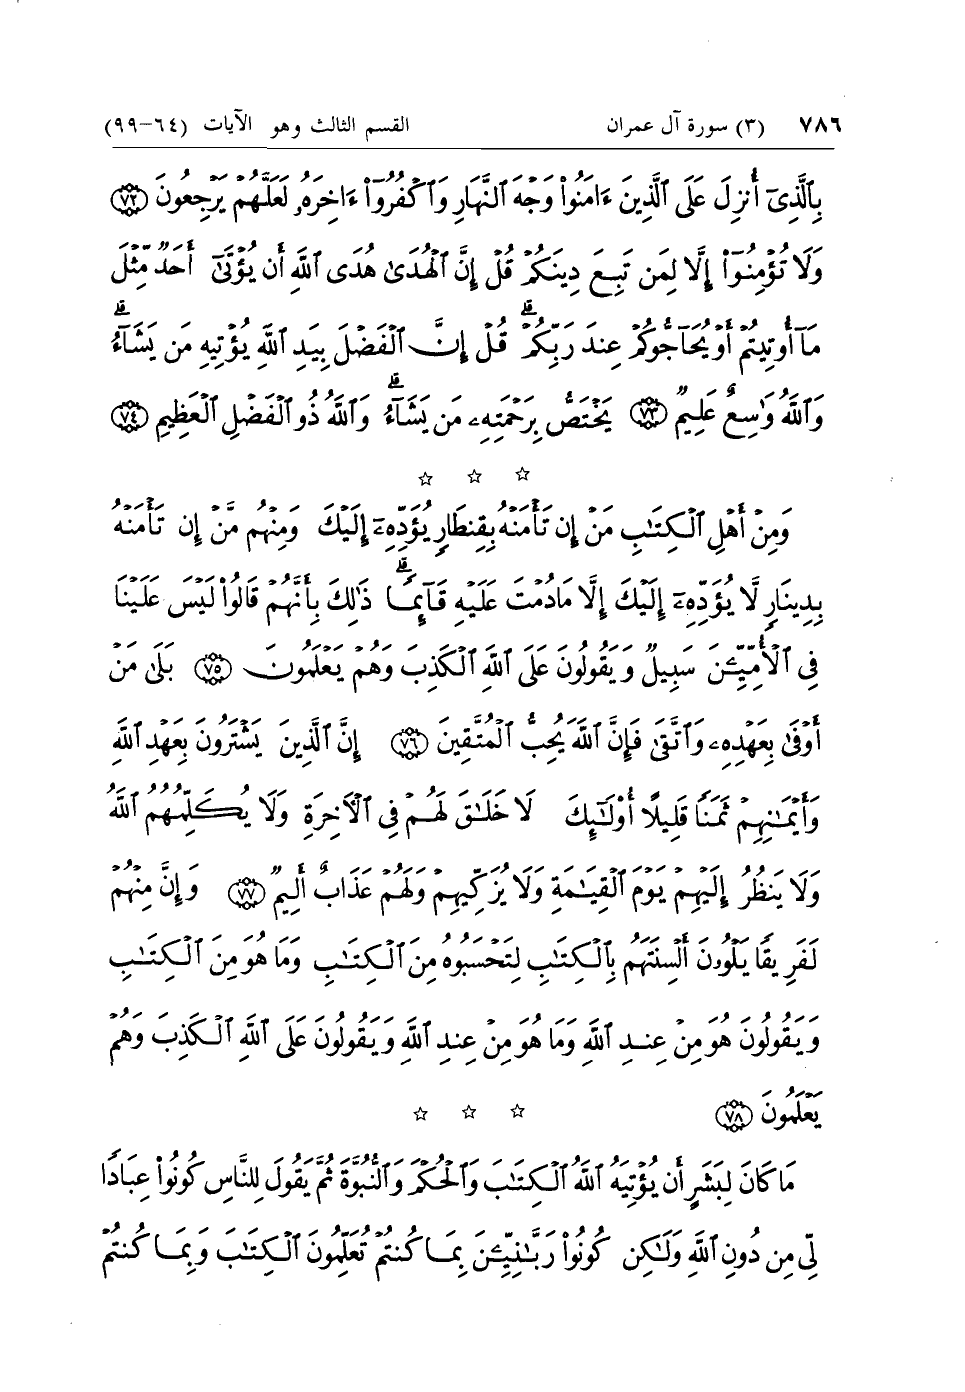 ٧٨٦ (٣) سورة آل عمران القسم الثالث وهو الآيات (٦٤-٩٩)
بِٱلَّذِىٓ أُنزِلَ عَلَى ٱلَّذِينَ ءَامَنُواْ وَجْهَ ٱلنَّهَارِ وَٱكْفُرُوٓاْ ءَاخِرَهُۥ لَعَلَّهُمْ يَرْجِعُونَ ﴿٧٢﴾
وَلَا تُؤْمِنُوٓاْ إِلَّا لِمَن تَبِعَ دِينَكُمْ قُلْ إِنَّ ٱلْهُدَىٰ هُدَى ٱللَّهِ أَن يُؤْتَىٰٓ أَحَدٌ مِّثْلَ
مَآ أُوتِيتُمْ أَوْ يُحَآجُّوكُمْ عِندَ رَبِّكُمْ ۗ قُلْ إِنَّ ٱلْفَضْلَ بِيَدِ ٱللَّهِ يُؤْتِيهِ مَن يَشَآءُ ۗ
وَٱللَّهُ وَٰسِعٌ عَلِيمٌ ﴿٧٣﴾ يَخْتَصُّ بِرَحْمَتِهِۦ مَن يَشَآءُ ۗ وَٱللَّهُ ذُو ٱلْفَضْلِ ٱلْعَظِيمِ ﴿٧٤﴾
☆ ☆ ☆
وَمِنْ أَهْلِ ٱلْكِتَٰبِ مَنْ إِن تَأْمَنْهُ بِقِنطَارٍ يُؤَدِّهِۦٓ إِلَيْكَ وَمِنْهُم مَّنْ إِن تَأْمَنْهُ
بِدِينَارٍ لَّا يُؤَدِّهِۦٓ إِلَيْكَ إِلَّا مَا دُمْتَ عَلَيْهِ قَآئِمًا ۗ ذَٰلِكَ بِأَنَّهُمْ قَالُواْ لَيْسَ عَلَيْنَا
فِى ٱلْأُمِّيِّـۧنَ سَبِيلٌ وَيَقُولُونَ عَلَى ٱللَّهِ ٱلْكَذِبَ وَهُمْ يَعْلَمُونَ ﴿٧٥﴾ بَلَىٰ مَنْ
أَوْفَىٰ بِعَهْدِهِۦ وَٱتَّقَىٰ فَإِنَّ ٱللَّهَ يُحِبُّ ٱلْمُتَّقِينَ ﴿٧٦﴾ إِنَّ ٱلَّذِينَ يَشْتَرُونَ بِعَهْدِ ٱللَّهِ
وَأَيْمَٰنِهِمْ ثَمَنًا قَلِيلًا أُوْلَٰٓئِكَ لَا خَلَٰقَ لَهُمْ فِى ٱلْأَخِرَةِ وَلَا يُكَلِّمُهُمُ ٱللَّهُ
وَلَا يَنظُرُ إِلَيْهِمْ يَوْمَ ٱلْقِيَٰمَةِ وَلَا يُزَكِّيهِمْ وَلَهُمْ عَذَابٌ أَلِيمٌ ﴿٧٧﴾ وَإِنَّ مِنْهُمْ
لَفَرِيقًا يَلْوُۥنَ أَلْسِنَتَهُم بِٱلْكِتَٰبِ لِتَحْسَبُوهُ مِنَ ٱلْكِتَٰبِ وَمَا هُوَ مِنَ ٱلْكِتَٰبِ
وَيَقُولُونَ هُوَ مِنْ عِندِ ٱللَّهِ وَمَا هُوَ مِنْ عِندِ ٱللَّهِ وَيَقُولُونَ عَلَى ٱللَّهِ ٱلْكَذِبَ وَهُمْ
يَعْلَمُونَ ﴿٧٨﴾ ☆ ☆ ☆
مَا كَانَ لِبَشَرٍ أَن يُؤْتِيَهُ ٱللَّهُ ٱلْكِتَٰبَ وَٱلْحُكْمَ وَٱلنُّبُوَّةَ ثُمَّ يَقُولَ لِلنَّاسِ كُونُواْ عِبَادًا
لِّى مِن دُونِ ٱللَّهِ وَلَٰكِن كُونُواْ رَبَّٰنِيِّـۧنَ بِمَا كُنتُمْ تُعَلِّمُونَ ٱلْكِتَٰبَ وَبِمَا كُنتُمْ